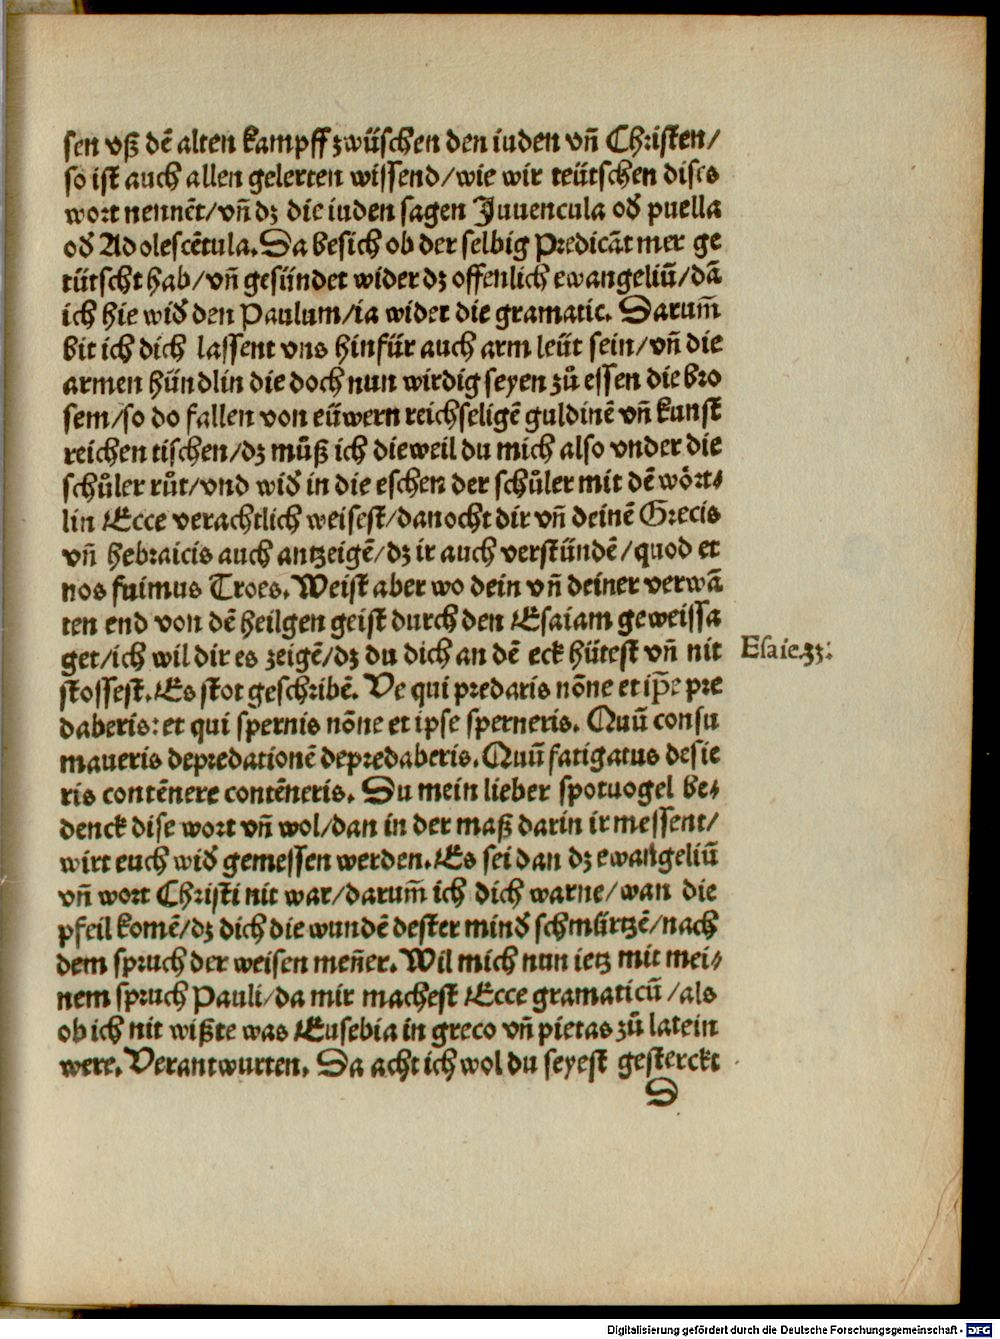 sen vß dē alten kampff zwüschen den iuden vn̄ Christen/
so ist auch allen gelerten wissend/wie wir teütschen dises
wort nennēt/vn̄ dz die iuden sagen Juuencula oď puella
oď Adolescētula. Da besich ob der selbig Predicāt mer ge
tütscht hab/vn̄ gesündet wider dz offenlich ewangeliū/dā
ich hie wiď den Paulum/ia wider die gramatic. Darum̄
bit ich dich lassent vns hinfür auch arm leüt sein/vn̄ die
armen hündlin die doch nun wirdig seyen zů essen die bro
sem/so do fallen von eüwern reichseligē guldinē vn̄ kunst
reichen tischen/dz můß ich dieweil du mich also vnder die
schůler růt/vnd wiď in die eschen der schůler mit dē wört⸗
lin Ecce verachtlich weisest/danocht dir vn̄ deinē Grecis
vn̄ hebraicis auch antzeigē/dz ir auch verstündē/quod et
nos fuimus Troes. Weist aber wo dein vn̄ deiner verwā
ten end von dē heilgen geist durch den Esaiam geweissa
get/ich wil dir es zeigē/dz du dich an dē eck hütest vn̄ nit
stossest. Es stot geschribē. Ve qui predaris nōne et ip̄e pre
daberis: et qui spernis nōne et ipse sperneris. Quū consu
maueris depredationē depredaberis. Quū fatigatus desie
ris contēnere contēneris. Du mein lieber spotuogel be⸗
denck dise wort vn̄ wol/dan in der maß darin ir messent/
wirt euch wiď gemessen werden. Es sei dan dz ewangeliū
vn̄ wort Christi nit war/darum̄ ich dich warne/wan die
pfeil komē/dz dich die wundē dester minď schmürtzē/nach
dem spruch der weisen men̄er. Wil mich nun ietz mit mei⸗
nem spruch Pauli/da mir machest Ecce gramaticū/als
ob ich nit wißte was Eusebia in greco vn̄ pietas zů latein
were. Verantwurten. Da acht ich wol du seyest gesterckt
D
Esaie.33.
Digitalisierung gefördert durch die Deutsche Forschungsgemeinschaft - DFG